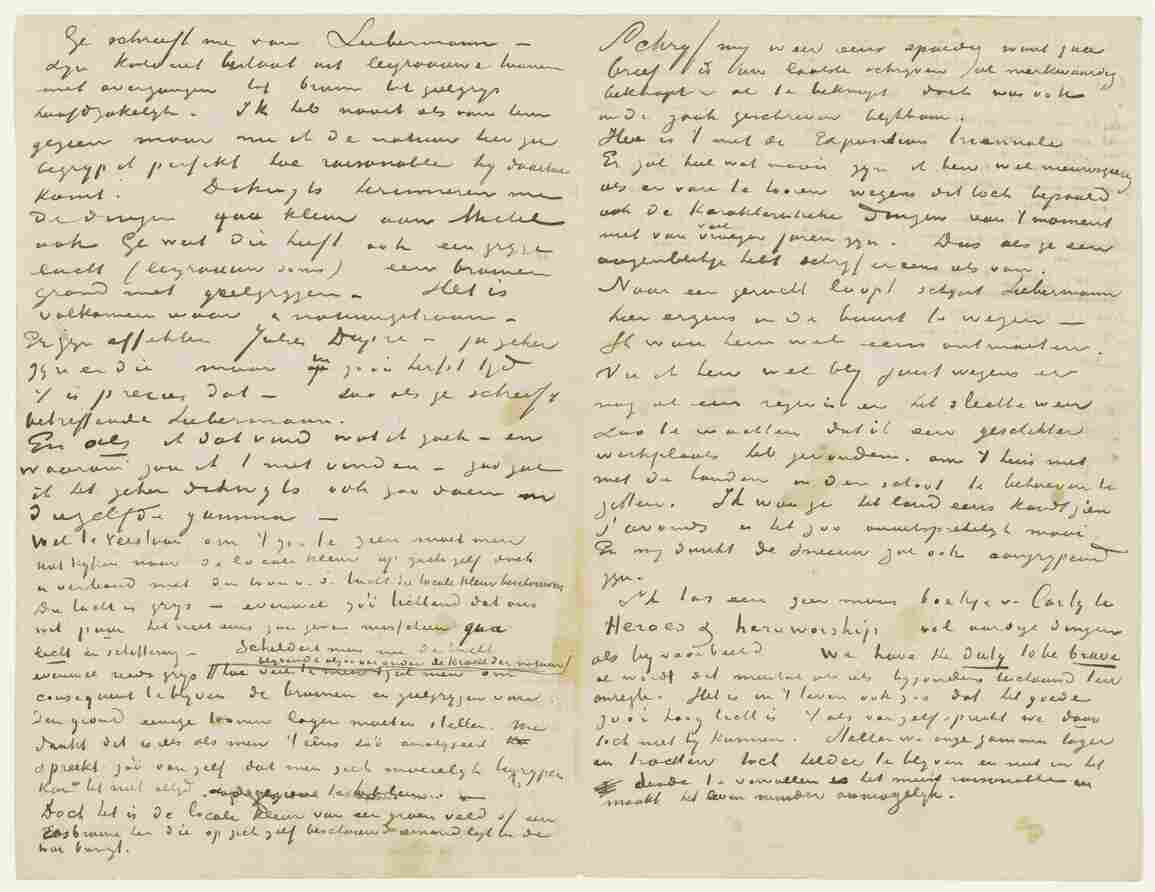 Ge schreeft me van Liebermann –
Zijn koloriet bestaat uit leigrauwe toonen
met overgangen tot bruin tot geelgrijs
hoofdzakelijk. Ik heb nooit iets van hem
gezien maar nu ik de natuur hier zie
begrijp ik perfekt hoe raisonnable hij daartoe
komt. Dikwijls herinneren me
de dingen qua kleur aan Michel
ook Ge weet die heeft ook een grijze
lucht (leigrauw soms) een bruinen
grond met geelgrijzen – Het is
volkomen waar & natuurgetrouw –
Er zijn effekten Jules Dupré – ja zeker
zijn er die maar nu zoo in herfst tijd
't is precies dat – zoo als ge schreeft
betreffende Liebermann.
En als ik dat vind wat ik zoek – en
waarom zou ik 't niet vinden – zoo zal
ik het zeker dikwijls ook zoo doen in
diezelfde gamma –
Wel te verstaan om 't zoo te zien moet men
niet kijken naar de locale kleur op zich zelf doch
in verband met den toon v. d. lucht die locale kleur beschouwen
Die lucht is grijs – evenwel zóó lichtend dat ons
wit puur het niet eens zou geven misschien qua
licht en schittering. Schildert men nu die lucht
evenwel reeds grijs
consequent te blijven de bruinen en geelgrijzen van
den grond eenige toonen lager moeten stellen. Me
dunkt dit is iets als men 't eens zóó analyseert
spreekt zóó van zelf dat men zich moeielijk begrijpen
kan het niet altijd
Doch het is de locale kleur van een groen veld of een
rosbruine hei die op zich zelf beschouwd iemand ligt in de
war brengt.
Schrijf mij weer eens spoedig want jou
brief is uw laatste schrijven al merkwaardig
beknopt – al te beknopt doch was ook
in de zaak geschreven blijkbaar.
Hoe is 't met de Exposition triennale
Er zal heel wat moois zijn ik ben wel nieuwsgierig
iets er van te hooren wegens dit toch bepaald
ook de karakteristieke dingen van 't moment
niet van vroeger jaren zijn. Dus als ge een
oogenblikje hebt schrijf er eens iets van.
Naar een gerucht loopt schijnt Liebermann
hier ergens in de buurt te wezen –
Ik wou hem wel eens ontmoeten.
Nu ik ben wel blij juist wegens er
nog al eens regen is en het slechte weer
zoo te wachten dat ik een geschikter
werkplaats heb gevonden. om 't huis niet
met de handen in den schoot te behoeven te
zitten. Ik wou ge het land eens kondt zien
's avonds is het zoo onuitsprekelijk mooi.
En mij dunkt de sneeuw zal ook aangrijpend
zijn.
Ik las een zeer mooi boekje v. Carlyle
Heroes & heroworship vol aardige dingen
als bij voorbeeld We have the duty to be brave
al wordt dit meestal als iets bijzonders beschouwd ten
onregte. Het is in 't leven ook zoo dat het goede
zóó'n hoog licht is 't als van zelf spreekt we daar
toch niet bij kunnen. Stellen we onze gamma lager
en trachten toch helder te blijven en niet in het
doode te vervallen is het meest raisonnable en
maakt het leven minder onmogelijk.